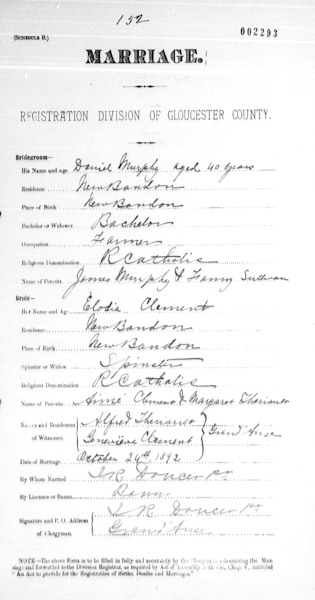 152
002293
(SCHEDULE B.)
MARRIAGE.
REGISTRATION DIVISION OF GLOUCESTER COUNTY.
Bridegroom—
His Name and Age Daniel Murphy aged 40 years
Residence New Bandon
Place of Birth New Bandon
Bachelor or Widower Bachelor
Occupation Farmer
Religious Denomination R Catholic
Names of Parents James Murphy & Fanny Sullivan
Bride—
Her Name and Age Elodia Clement
Residence New Bandon
Place of Birth New Bandon
Spinster or Widow Spinster
Religious Denomination R Catholic
Names of Parents Aimé Clement & Margaret Theriault
Names and Residences Alfred Theriault
of Witnesses. Genevieve Clement } Grand'Anse
Date of Marriage October 24th 1892
By Whom Married J R Doucet Pr
By Licenses or Banns Bann
J R Doucet Pr
Signature and P. O. Address
of Clergyman. Grand'Anse
NOTE—The above Form is to be filled in fully and accurately by the Clergyman solemnizing the Mar-
riage and forwarded to the Division Registrar, as required by Act of Assembly, Chap. V., intituled
"An Act to provide for the Registration of Births, Deaths and Marriages."